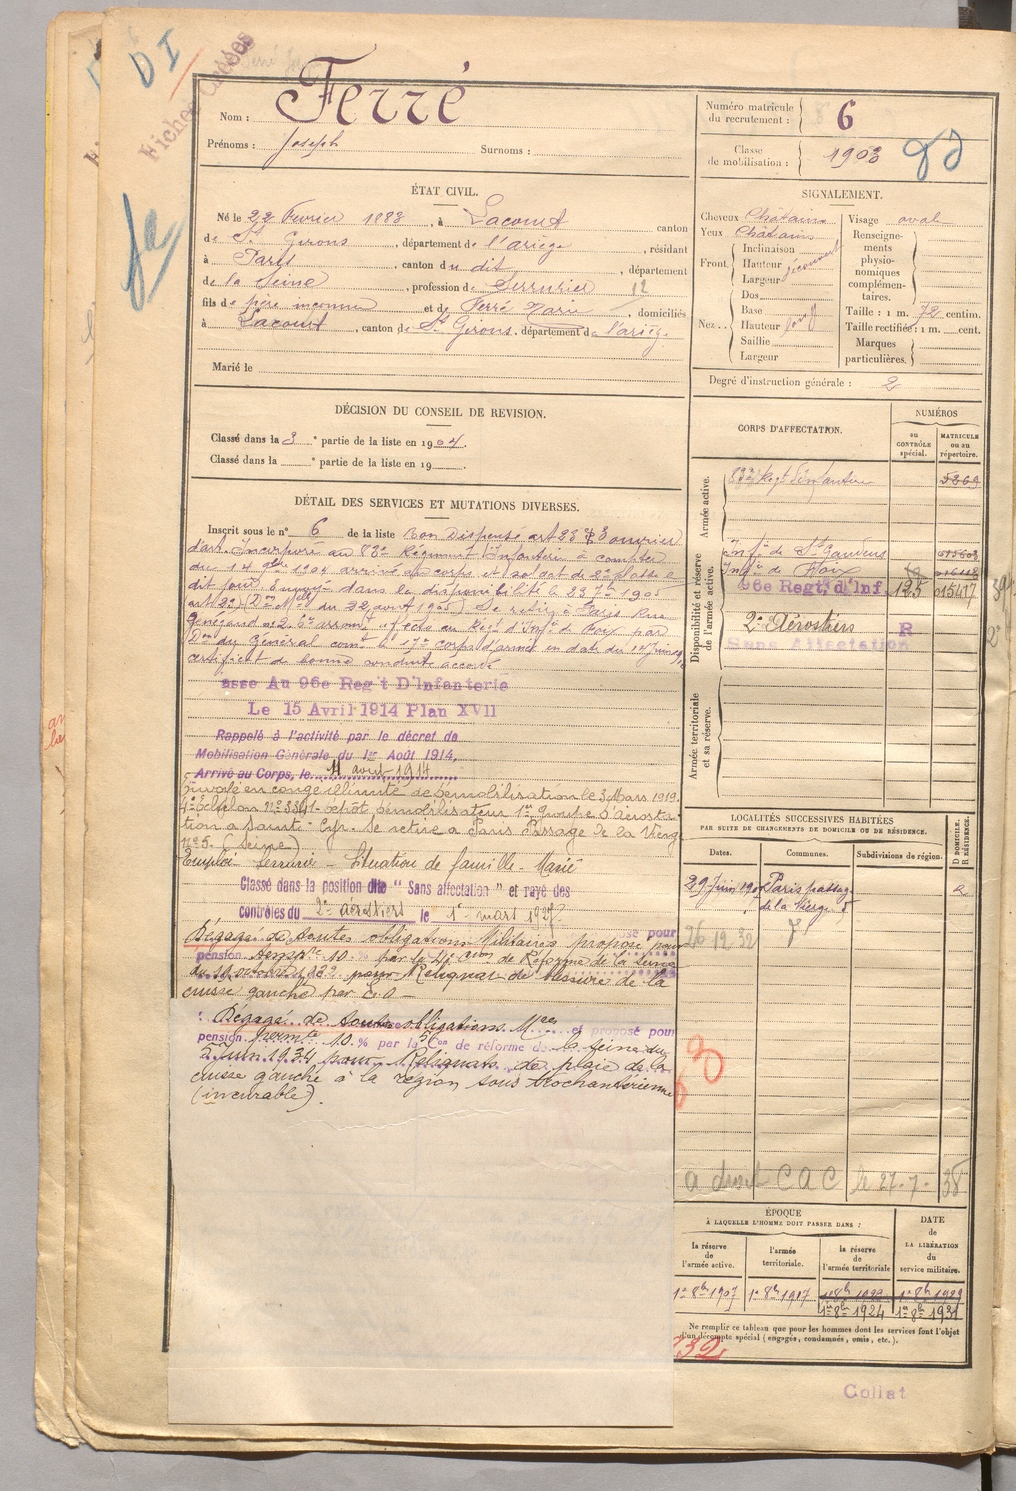 DI
Fiches Créées
Nom : Ferré
Prénoms : Joseph Surnoms :
Numéro matricule du recrutement : 6
Classe de mobilisation : 1903
ÉTAT CIVIL.
Né le 22 Février 1883, à Lacourt canton
de St Girons, département de l'ariège, résidant
à Paris, canton du dit, département
de la Seine, profession de Serrurier 12
fils de père inconnu et de Ferré Marie, domiciliés
à Lacourt, canton de St Girons, département de l'ariège
Marié le
SIGNALEMENT.
Cheveux Châtains
Yeux Châtains
Front. Inclinaison
Hauteur découvert
Largeur
Nez.. Dos
Base
Hauteur
Saillie
Largeur
Visage oval
Renseignements physionomiques complémentaires.
Taille : 1 m. 72 centim.
Taille rectifiée : 1 m. cent.
Marques particulières.
Degré d'instruction générale : 2
DÉCISION DU CONSEIL DE REVISION.
Classé dans la 3e partie de la liste en 1904.
Classé dans la e partie de la liste en 19 .
DÉTAIL DES SERVICES ET MUTATIONS DIVERSES.
Inscrit sous le n° 6 de la liste Bon Dispensé art 23 ouvrier
d'art. Incorporé au 83e Régiment d'Infanterie à compter
du 14 9bre 1904 arrivé au corps et soldat de 2e classe le
dit jour. Envoyé dans la disponibilité le 23 7bre 1905
Se retire à Paris Rue
Guénégaud affecté au Regt d'Infie de Foix par
Don du Général comt le 17e corps d'armée en date du
certificat de bonne conduite accordé
asse Au 96e Reg't D'Infanterie
Le 15 Avril 1914 Plan XVII
Rappelé à l'activité par le décret de
Mobilisation Générale du 1er Août 1914,
Arrivé au Corps, le 4 aout 1914
Envoyé en congé illimité de démobilisation le 3 Mars 1919.
4e Echelon n° 3341 dépôt démobilisateur 1er groupe d'aérosta-
tion a Saint-Cyr. Se retire a Paris Passage de la Vierge
n° 5. (Seine)
Emploi Serrurier - Situation de famille - Marié
Classé dans la position dite " Sans affectation " et rayé des
contrôles du 2e aérostiers le 1er mars 1927.
Dégagé de toutes obligations Militaires proposé pour
pension temp're 10 % par la 4e Con de Réforme de la Seine
du 10 octobre 1932 pour Reliquat de blessure de la
cuisse gauche par E.O -
Dégagé de toutes obligations Mres et proposé pour
pension permte 10 % par la 5e Con de réforme de la Seine du
5 Juin 1934 pour Reliquats de plaie de la
cuisse gauche à la région sous trochantérienne
(incurable).
CORPS D'AFFECTATION.
NUMÉROS
au CONTRÔLE spécial.
MATRICULE ou au répertoire.
Armée active.
83e Regt d'Infanterie 5269
Disponibilité et réserve de l'armée active.
Infie de St Gaudens 015603
Infie de Foix 016112
96e Regt, d'Inf. 125 015417
2e Aérostiers R
Sans Affectation
Armée territoriale et sa réserve.
LOCALITÉS SUCCESSIVES HABITÉES
PAR SUITE DE CHANGEMENTS DE DOMICILE OU DE RÉSIDENCE.
Dates. Communes. Subdivisions de région. D DOMICILE. R RÉSIDENCE.
29 Juin 1907 Paris passage de la Vierge 5 R
26 12 32
a droit C A C le 27-7-38
ÉPOQUE
À LAQUELLE L'HOMME DOIT PASSER DANS :
la réserve de l'armée active. l'armée territoriale. la réserve de l'armée territoriale
DATE de LA LIBÉRATION du service militaire.
1er 8bre 1907 1er 8bre 1917 1er 8bre 1923 1er 8bre 1929
1er 8bre 1924 1er 8bre 1931
Ne remplir ce tableau que pour les hommes dont les services font l'objet
d'un décompte spécial (engagés, condamnés, omis, etc.).
Collat